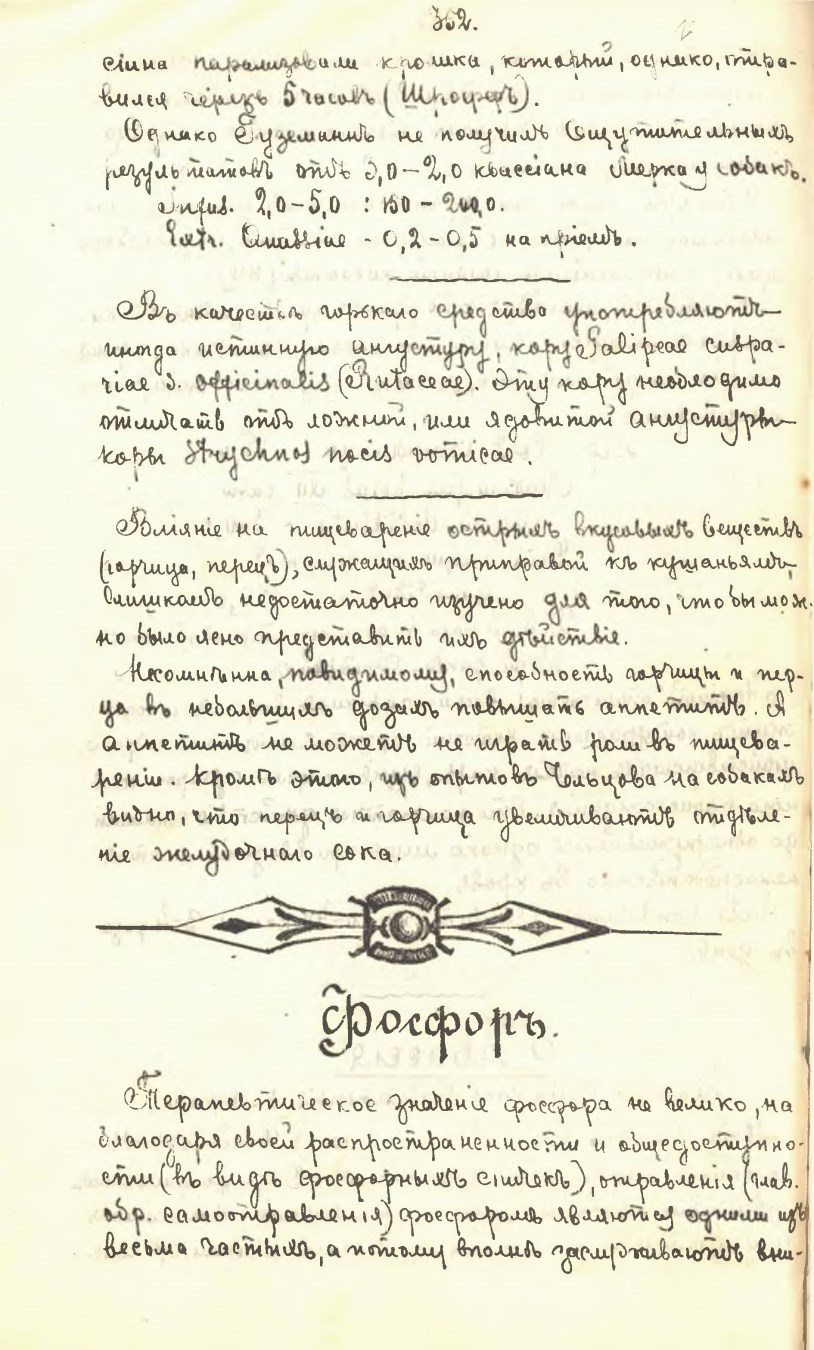 352.
сіина парализовали кролика, который, однако, отра-
вился черезъ 5 часовъ (Шроффъ).
Однако Гуземаннъ не получилъ ощутительныхъ
результатовъ отъ 1,0–2,0 квассіина Мерка у собакъ.
Infus. 2,0–5,0 : 150 – 200,0.
Extr. Quassiae - 0,2–0,5 на пріемъ.
Въ качествѣ горькаго средства употребляютъ
иногда истинную ангустуру, кору Galipeae cuspa-
riae s. officinalis (Rutaceae). Эту кору необходимо
отличать отъ ложной, или ядовитой ангустуры
коры Strychnos nucis vomicae.
Вліяніе на пищевареніе острыхъ вкусовыхъ веществъ
(горчица, перецъ), служащихъ приправой къ кушаньямъ,
слишкомъ недостаточно изучено для того, чтобы мож-
но было ясно представить ихъ дѣйствіе.
Несомнѣнна, повидимому, способность горчицы и пер-
ца въ небольшихъ дозахъ повышать аппетитъ. А
аппетитъ не можетъ не играть роли въ пищева-
реніи. Кромѣ этого, изъ опытовъ Чельцова на собакахъ
видно, что перецъ и горчица увеличиваютъ отдѣле-
ніе желудочнаго сока.
Фосфоръ.
Терапевтическое значеніе фосфора не велико, на
благодаря своей распространенности и общедоступно-
сти (въ видѣ фосфорныхъ спичекъ), отравленія (глав.
обр. самоотравленія) фосфоромъ являются одними изъ
весьма частыхъ, а потому вполнѣ заслуживаютъ вни-